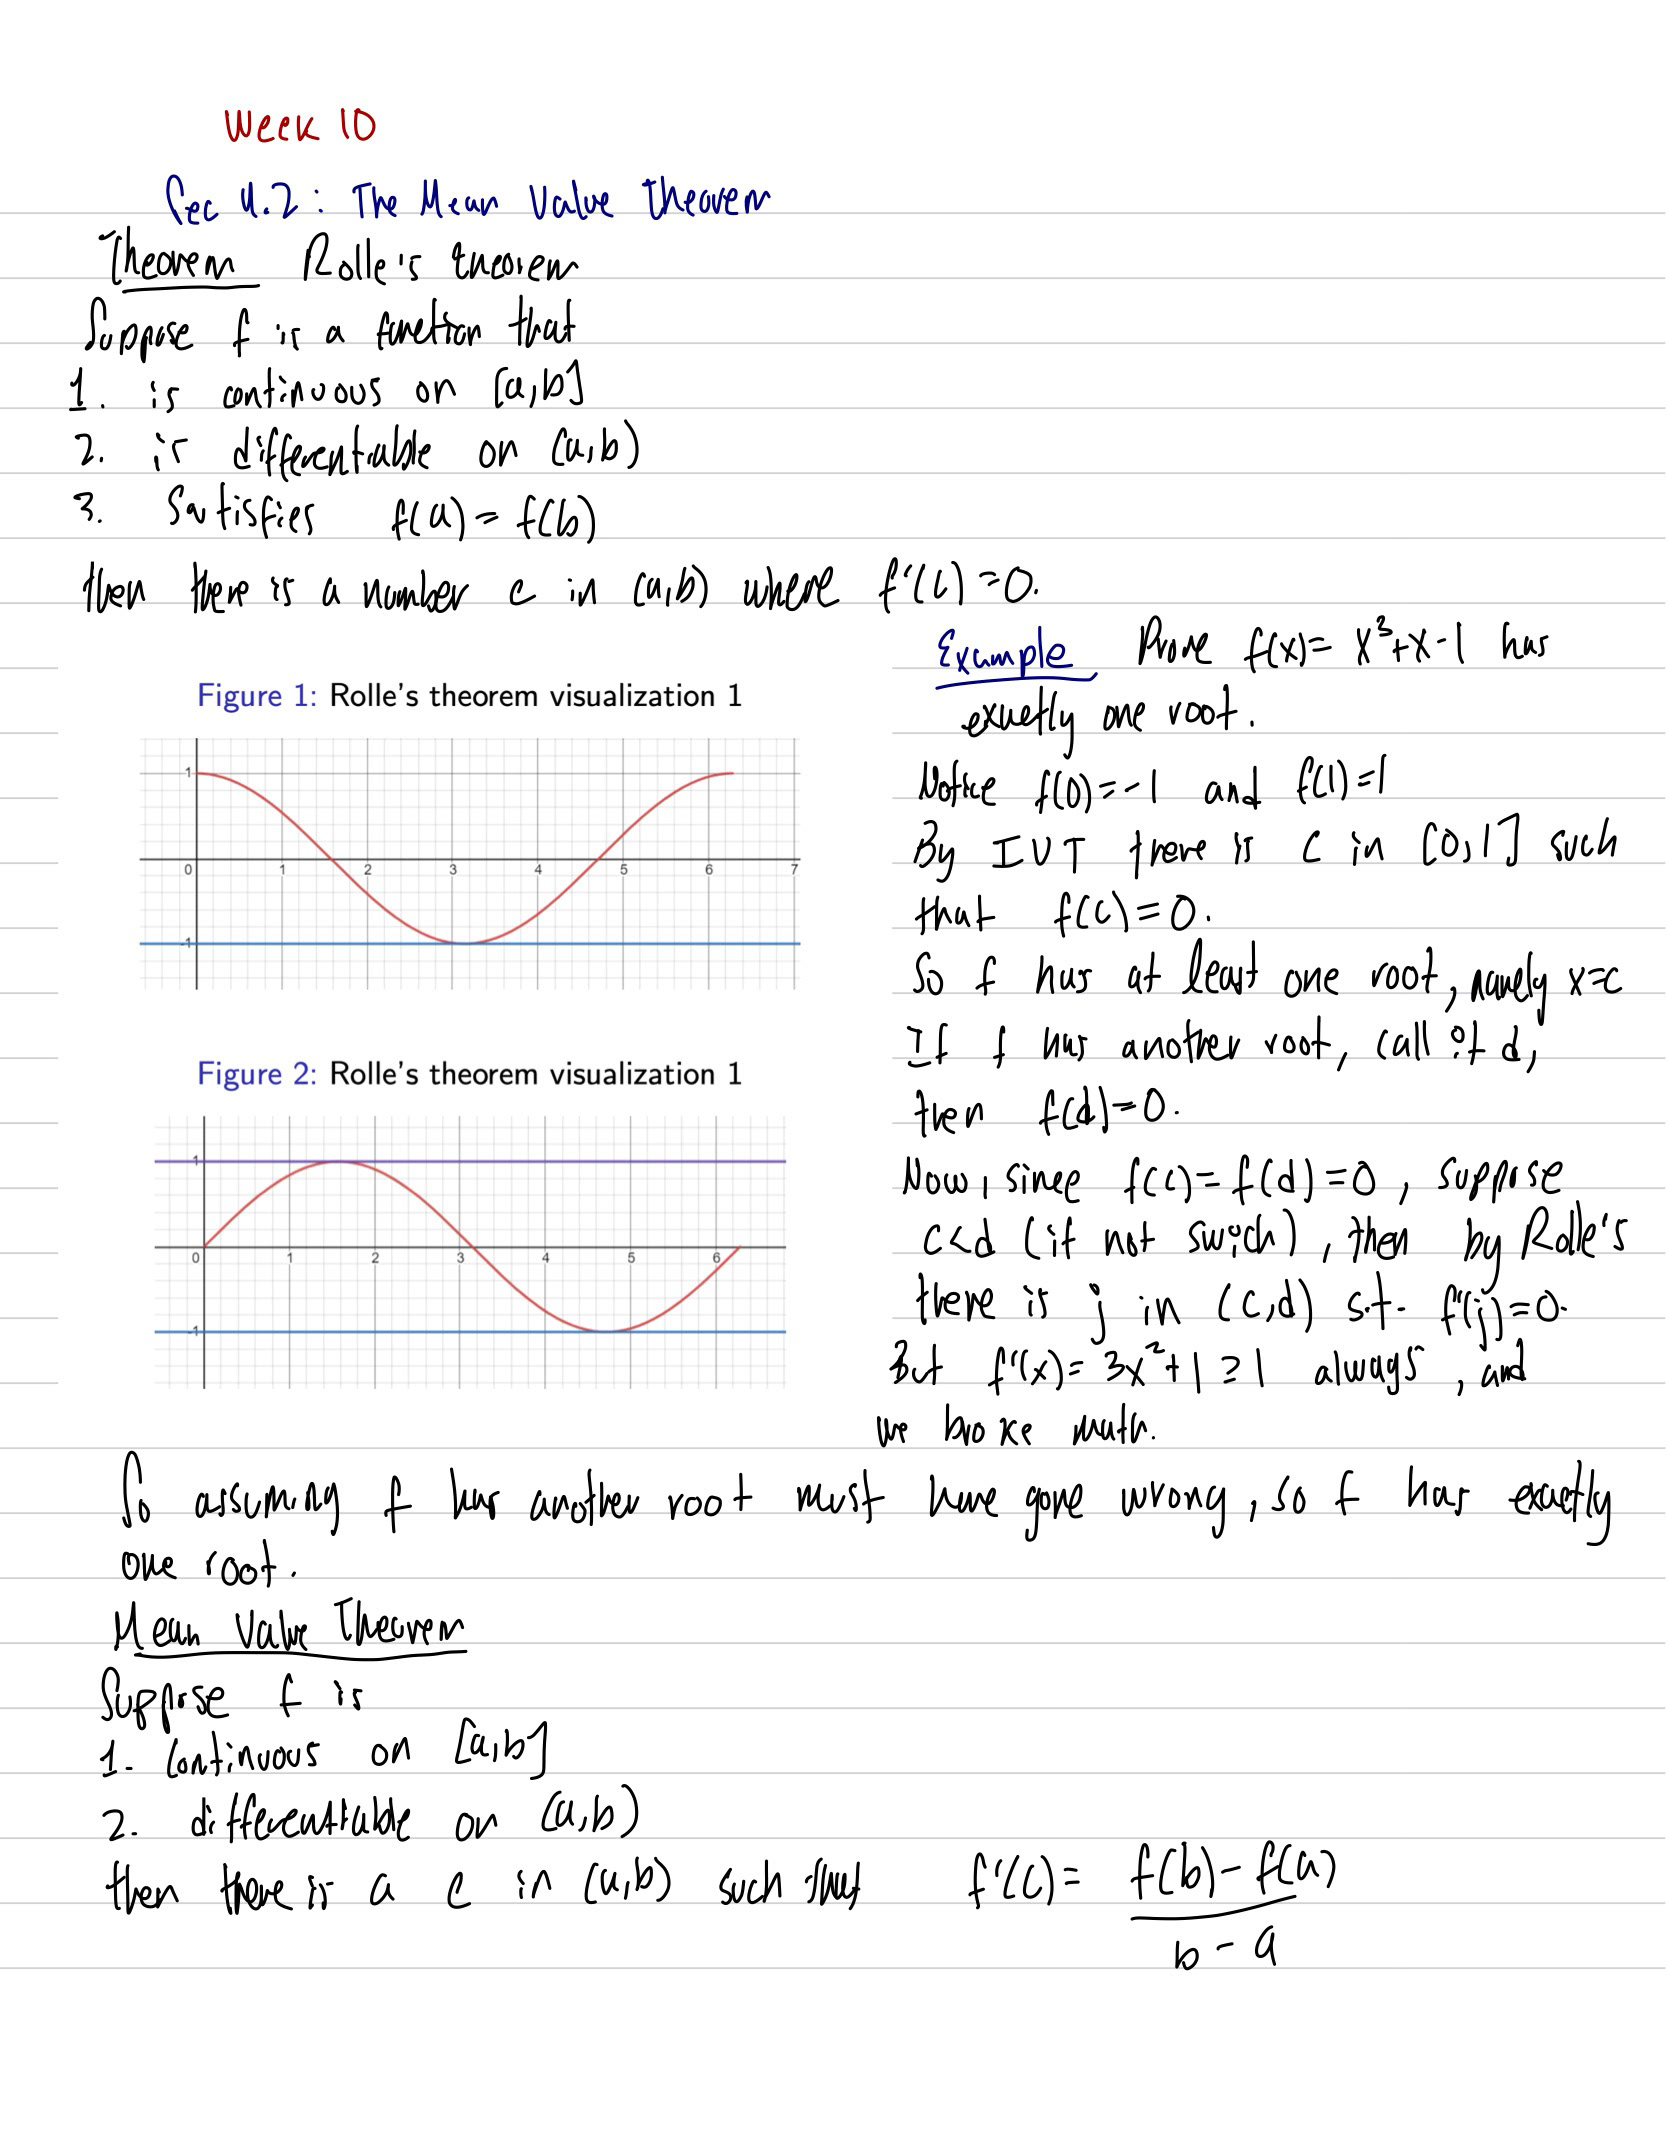 Week 10
Sec 4.2: The Mean Value Theorem
Theorem Rolle's theorem
Suppose f is a function that
1. is continuous on [a,b]
2. is differentiable on (a,b)
3. Satisfies f(a) = f(b)
then there is a number c in (a,b) where f'(c) = 0.
Figure 1: Rolle's theorem visualization 1
1
0 1 2 3 4 5 6 7
-1
Figure 2: Rolle's theorem visualization 1
1
0 1 2 3 4 5 6
-1
Example Prove f(x) = x³+x-1 has
exactly one root.
Notice f(0)=-1 and f(1)=1
By IVT there is c in [0,1] such
that f(c)=0.
So f has at least one root, namely x=c
If f has another root, call it d,
then f(d)=0.
Now, since f(c)=f(d)=0, suppose
c<d (if not swich), then by Rolle's
there is j in (c,d) s.t. f'(j)=0.
But f'(x)=3x²+1≥1 always, and
we broke math.
So assuming f has another root must have gone wrong, so f has exactly
one root.
Mean Value Theorem
Suppose f is
1. continuous on [a,b]
2. differentiable on (a,b)
then there is a c in (a,b) such that f'(c) = f(b)-f(a)
b-a